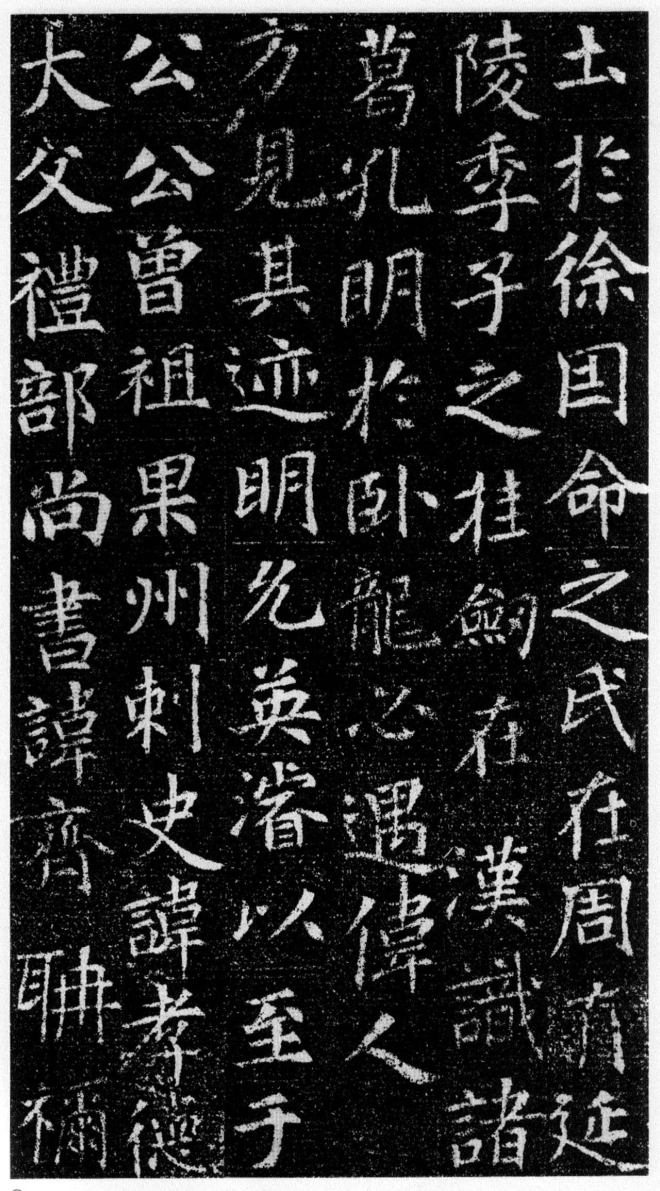 土於徐囙命之氏在周有延
陵季子之挂劒在漢識諸
葛孔明於卧龍必遇偉人
方見其迹明允英濬以至于
公公曾祖果州刺史諱孝德
大父禮部尚書諱齊聃禰